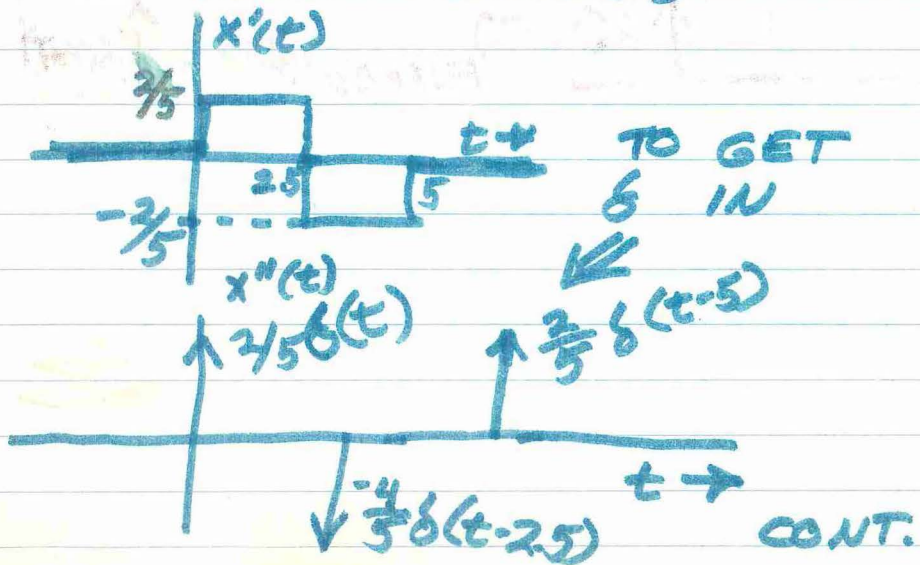 x'(t)
2/5
t→
TO GET
2.5
5
δ IN
-2/5
x"(t)
2/5 δ(t)
2/5 δ(t-5)
t →
-4/5 δ(t-2.5)
CONT.